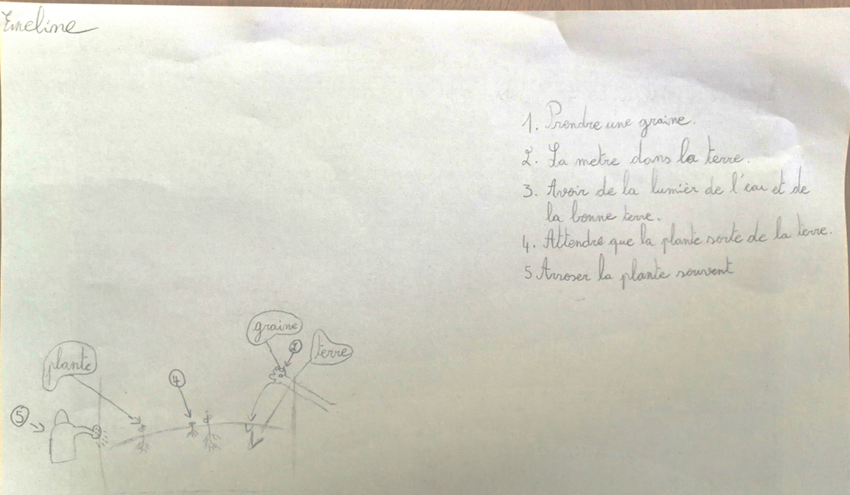 Emeline
1. Prendre une graine.
2. La metre dans la terre.
3. Avoir de la lumièr de l'eau et de
la bonne terre.
4. Attendre que la plante sorte de la terre.
5 Arroser la plante souvent
graine
terre
plante
4
5